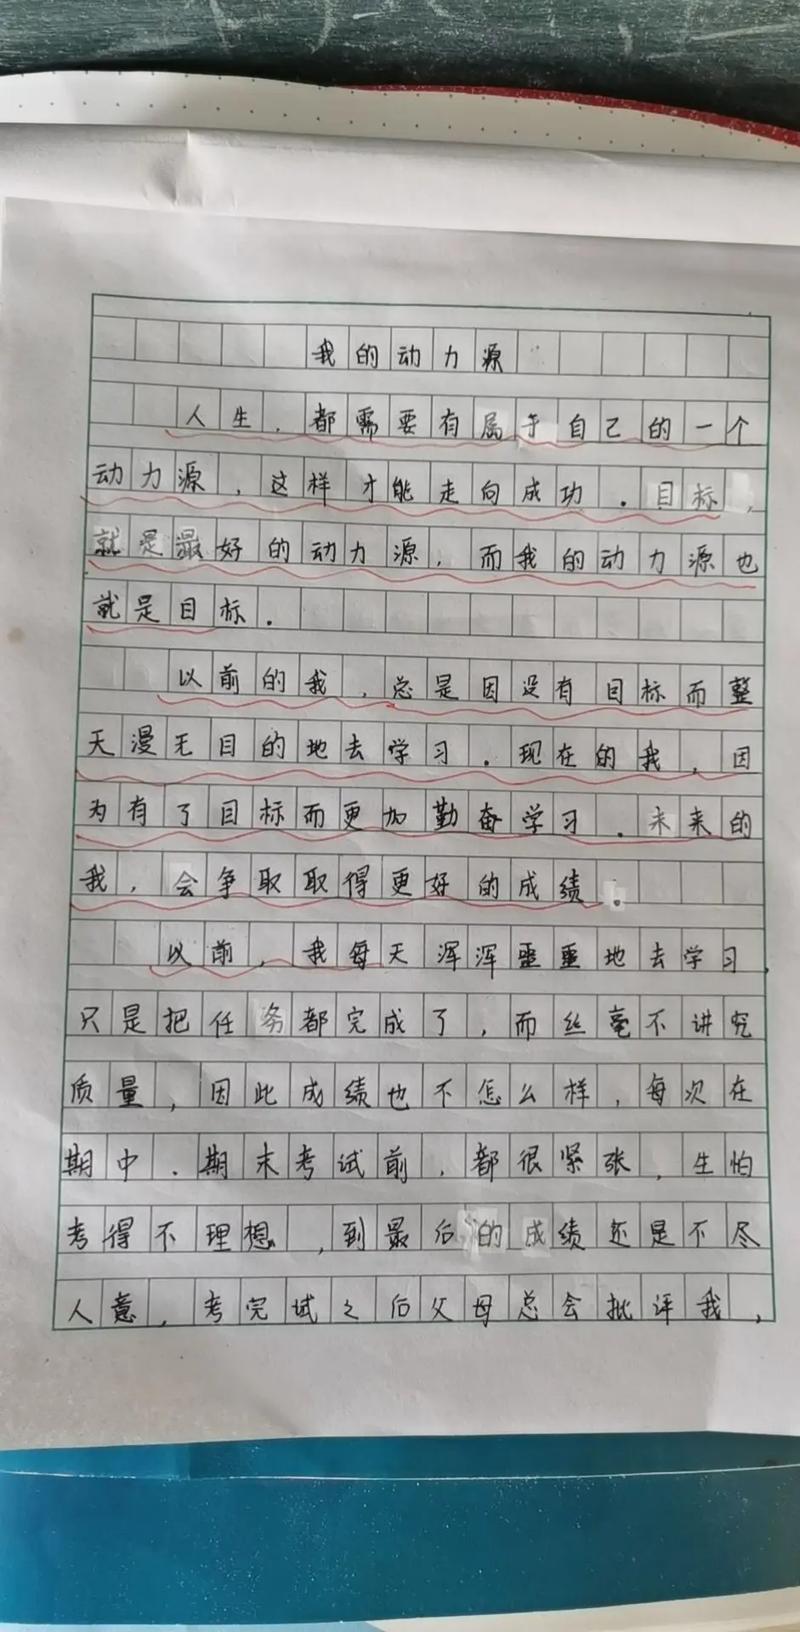 我的动力源
人生，都需要有属于自己的一个
动力源，这样才能走向成功。目标，
就是最好的动力源，而我的动力源也
就是目标。
以前的我，总是因没有目标而整
天漫无目的地去学习。现在的我，因
为有了目标而更加勤奋学习。未来的
我，会争取取得更好的成绩。
以前，我每天浑浑噩噩地去学习，
只是把任务都完成了，而丝毫不讲究
质量，因此成绩也不怎么样，每次在
期中、期末考试前，都很紧张，生怕
考得不理想，到最后的成绩还是不尽
人意，考完试之后父母总会批评我，